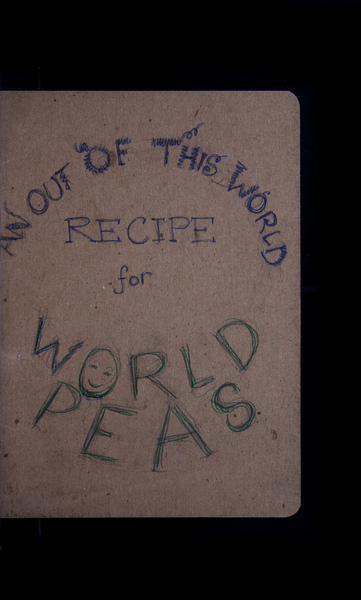 AN OUT OF THIS WORLD
RECIPE
for
WORLD
PEAS